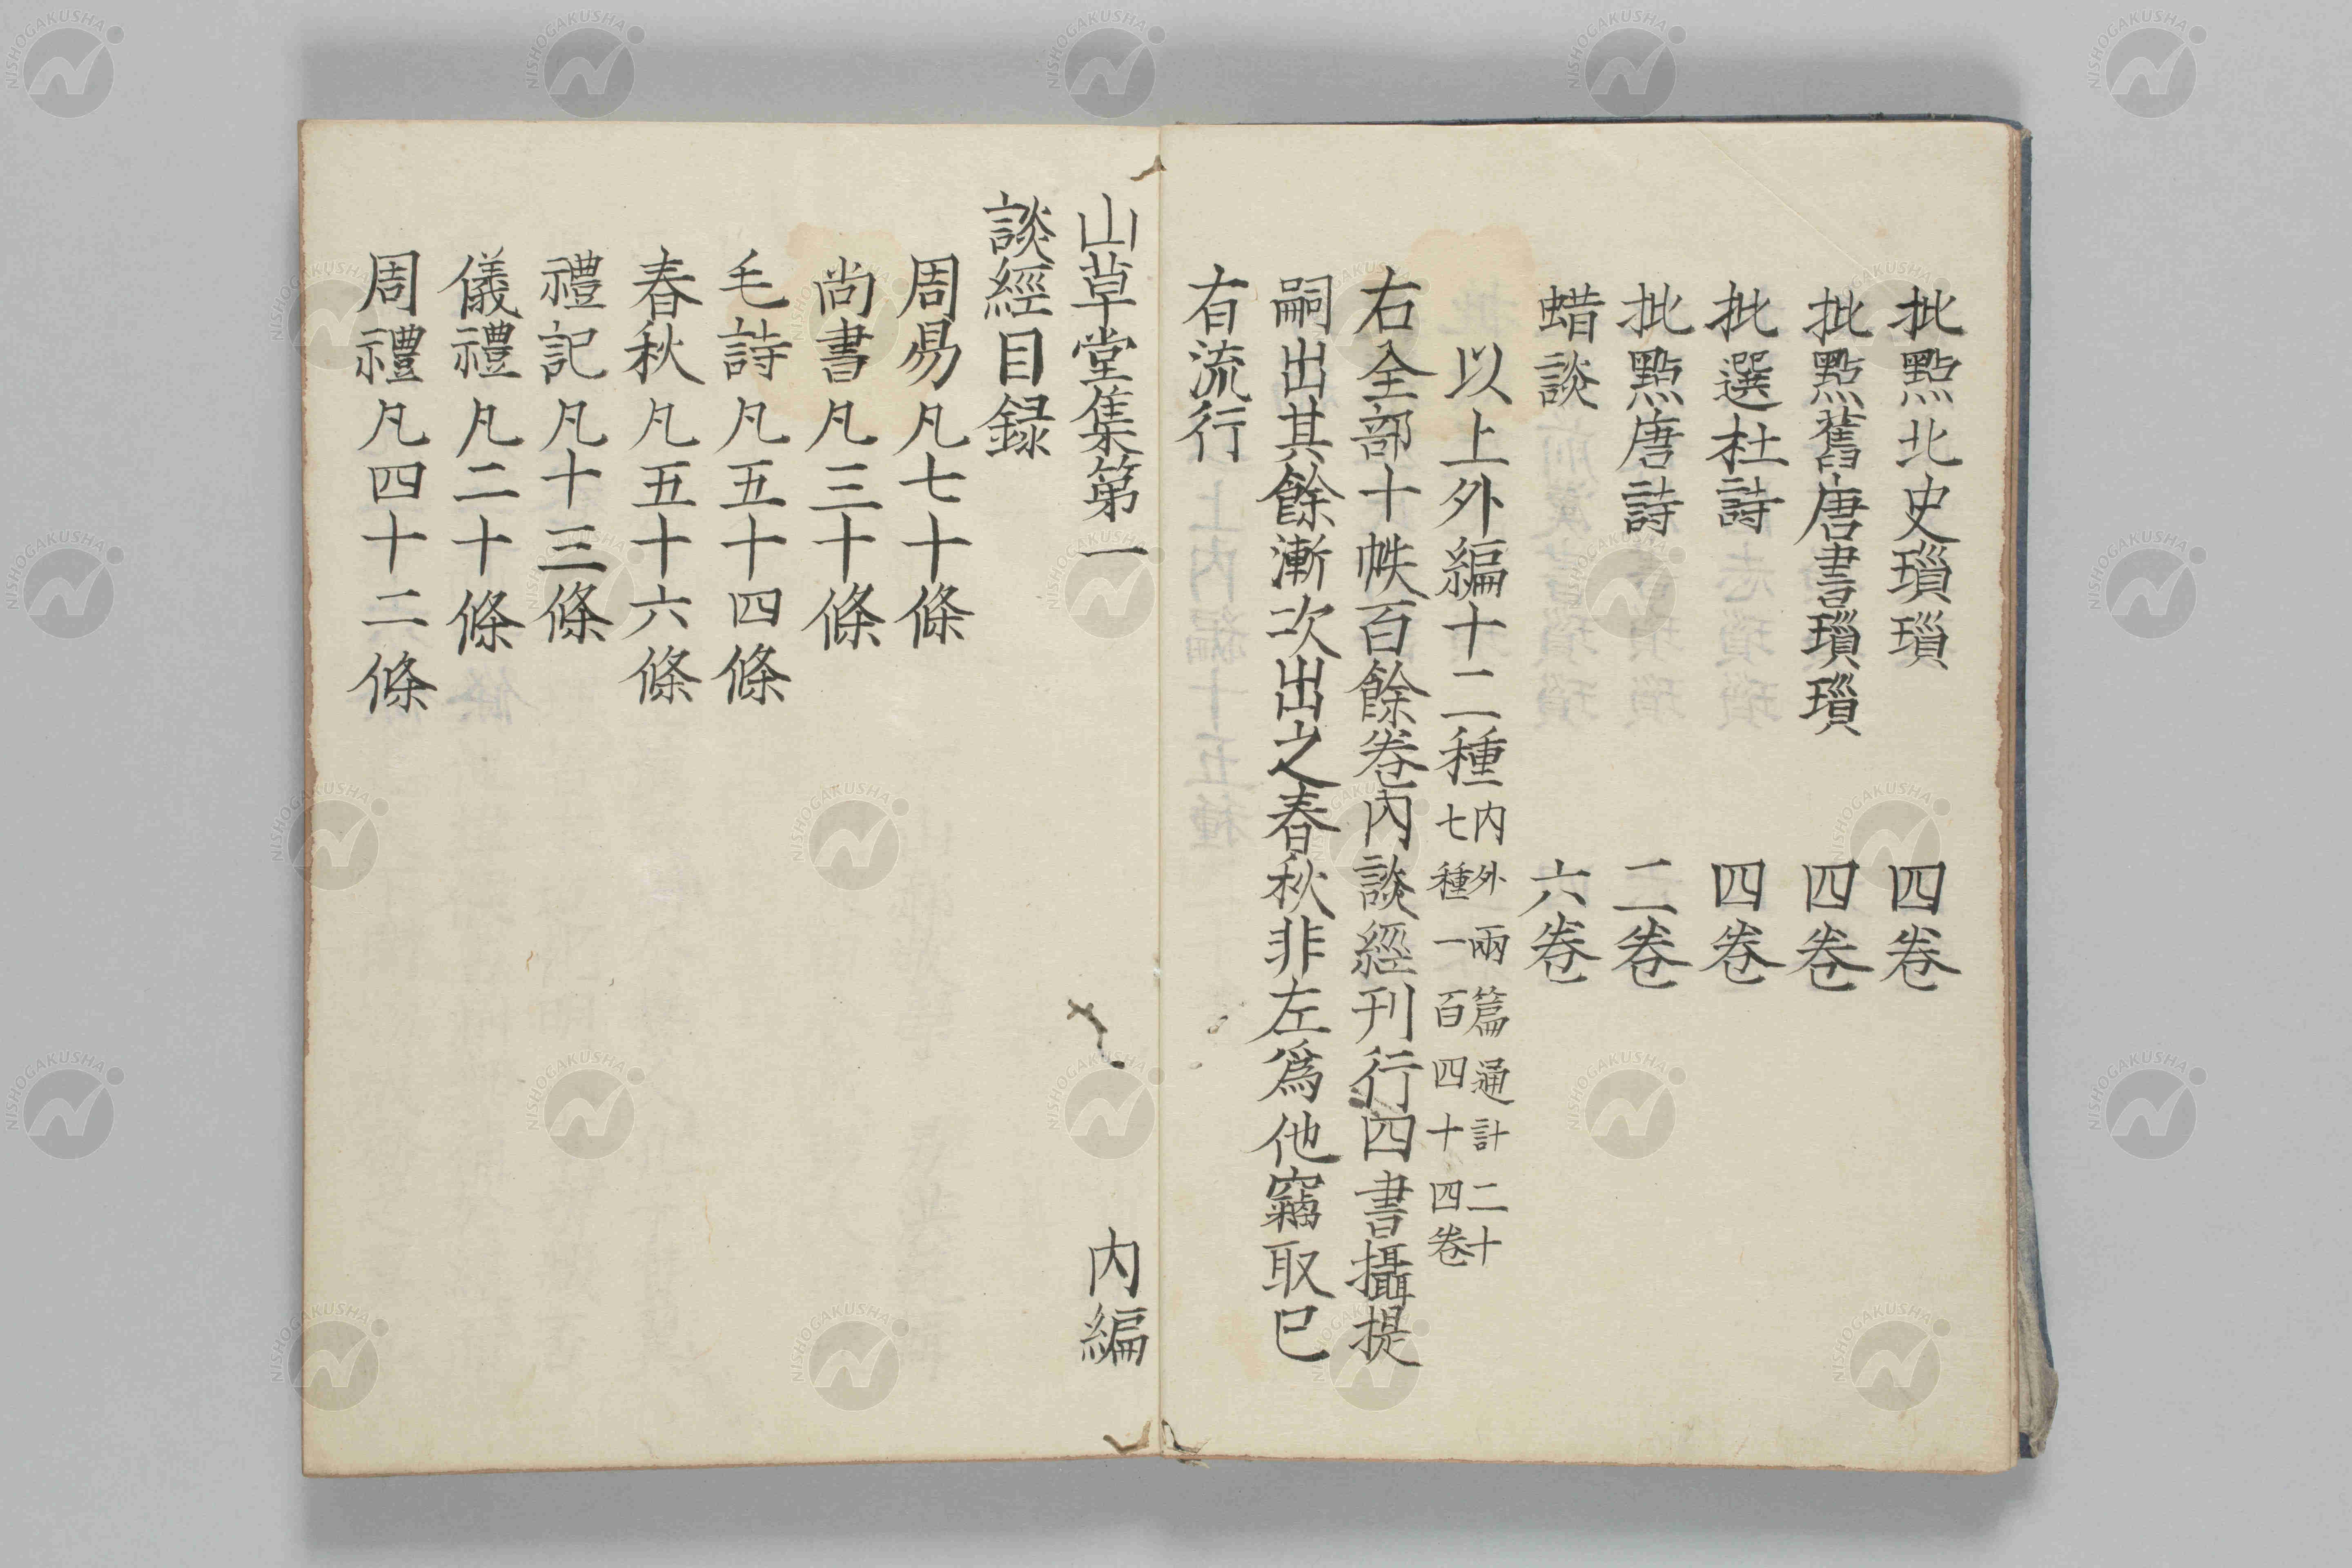 批點北史瑣瑣 四卷
批點舊唐書瑣瑣 四卷
批選杜詩 四卷
批點唐詩 二卷
蜡談 六卷
以上外編十二種 内外兩篇通計二十
七種一百四十四卷
右全部十帙百餘卷內談經刊行四書攝提
嗣出其餘漸次出之春秋非左爲他竊取已
有流行
山草堂集第一 内編
談經目録
周易凡七十條
尚書凡三十條
毛詩凡五十四條
春秋凡五十六條
禮記凡十三條
儀禮凡二十條
周禮凡四十二條
NISHOGAKUSHA